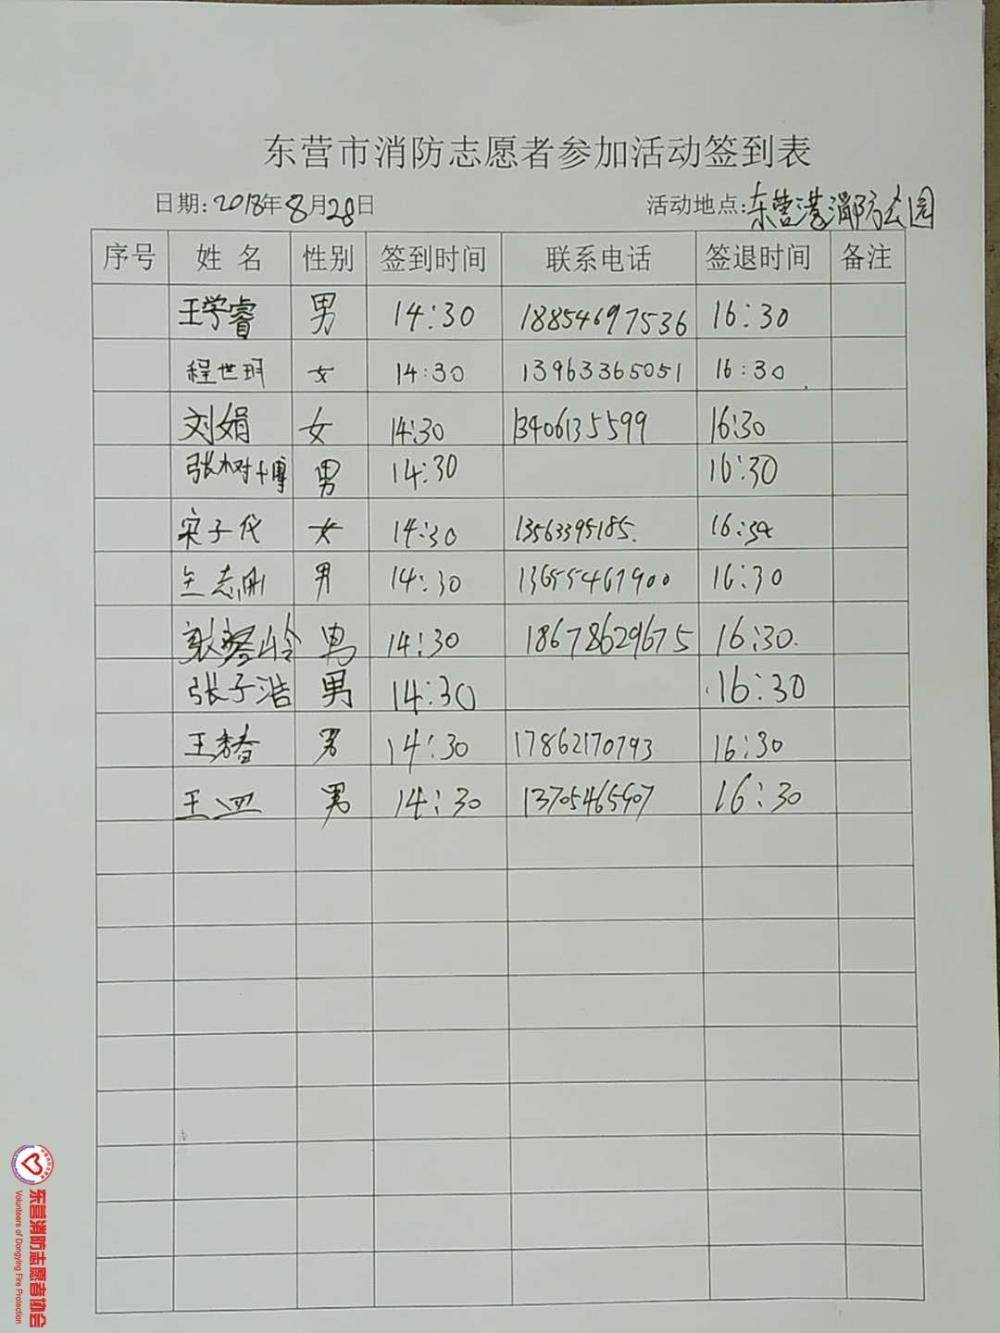 东营市消防志愿者参加活动签到表
日期:2018年8月28日 活动地点:东营港消防公园
序号 姓名 性别 签到时间 联系电话 签退时间 备注
王学睿 男 14:30 18854697536 16:30
程世玥 女 14:30 13963365051 16:30
刘娟 女 14:30 13406135599 16:30
张树博 男 14:30 16:30
宋子仪 女 14:30 13563395185. 16:30
志刚 男 14:30 13655467900 16:30
男 14:30 18678629675 16:30.
张子浩 男 14:30 16:30
王春 男 14:30 17862170793 16:30
王 男 14:30 13705465907 16:30
东营消防志愿者协会
Volunteers of Dongying Fire Protection